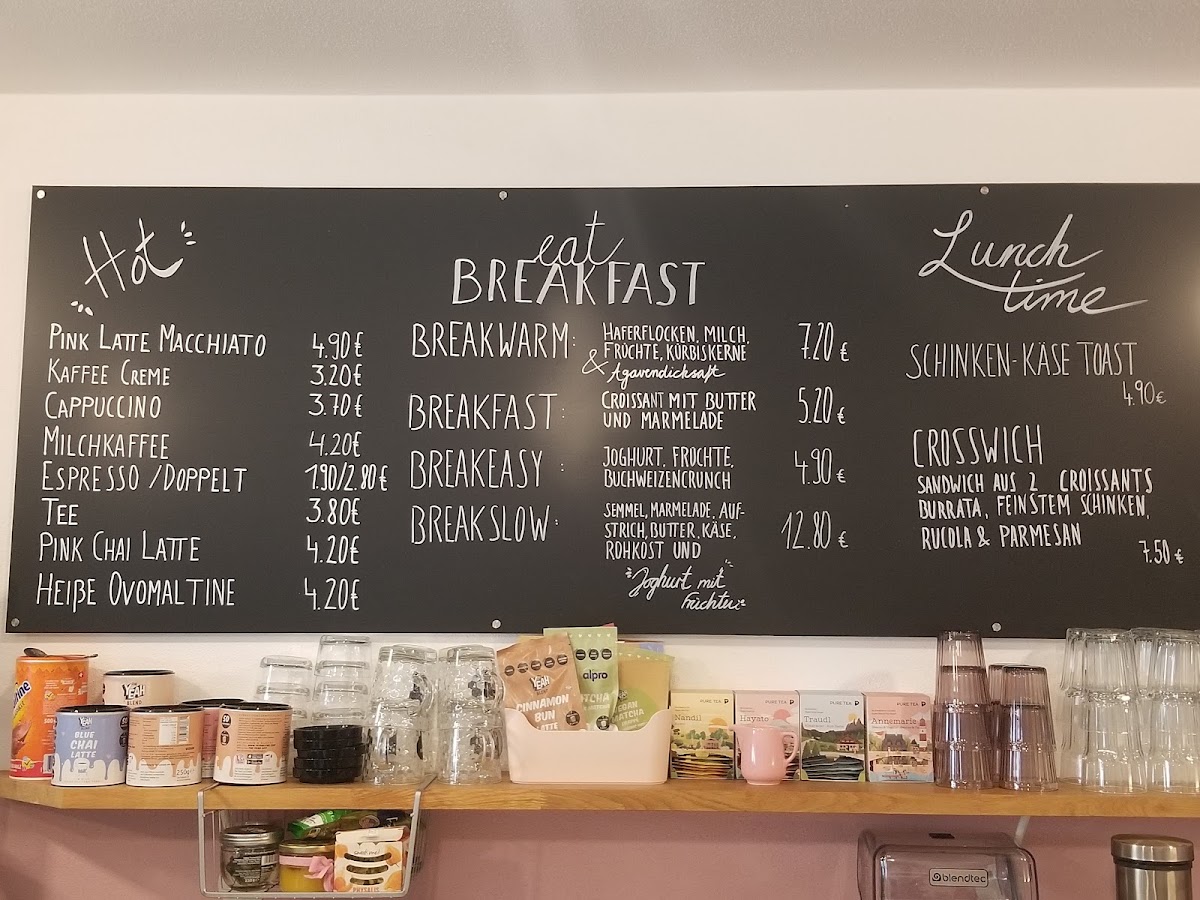 Hot
PINK LATTE MACCHIATO 4.90€
KAFFEE CREME 3.20€
CAPPUCCINO 3.70€
MILCHKAFFEE 4.20€
ESPRESSO /DOPPELT 1.90/2.80€
TEE 3.80€
PINK CHAI LATTE 4.20€
HEIßE OVOMALTINE 4.20€
eat
BREAKFAST
BREAKWARM: HAFERFLOCKEN, MILCH, 7.20 €
FRÜCHTE, KÜRBISKERNE
& Agavendicksaft
BREAKFAST: CROISSANT MIT BUTTER 5.20 €
UND MARMELADE
BREAKEASY : JOGHURT, FRÜCHTE, 4.90 €
BUCHWEIZENCRUNCH
BREAKSLOW: SEMMEL, MARMELADE, AUF- 12.80 €
STRICH, BUTTER, KÄSE,
ROHKOST UND
Joghurt mit
Früchten
Lunch
time
SCHINKEN-KÄSE TOAST
4.90€
CROSSWICH
SANDWICH AUS 2 CROISSANTS
BURRATA, FEINSTEM SCHINKEN,
RUCOLA & PARMESAN
7.50 €
YEAH
BLEND
YEAH
BLUE
CHAI
LATTE
250g
YEAH
CINNAMON
BUN
alpro
MATCHA
VEGAN
MATCHA
PURE TEA
Nandi
PURE TEA
Hayato
PURE TEA
Traudl
PURE TEA
Annemarie
PHYSALIS
blendtec